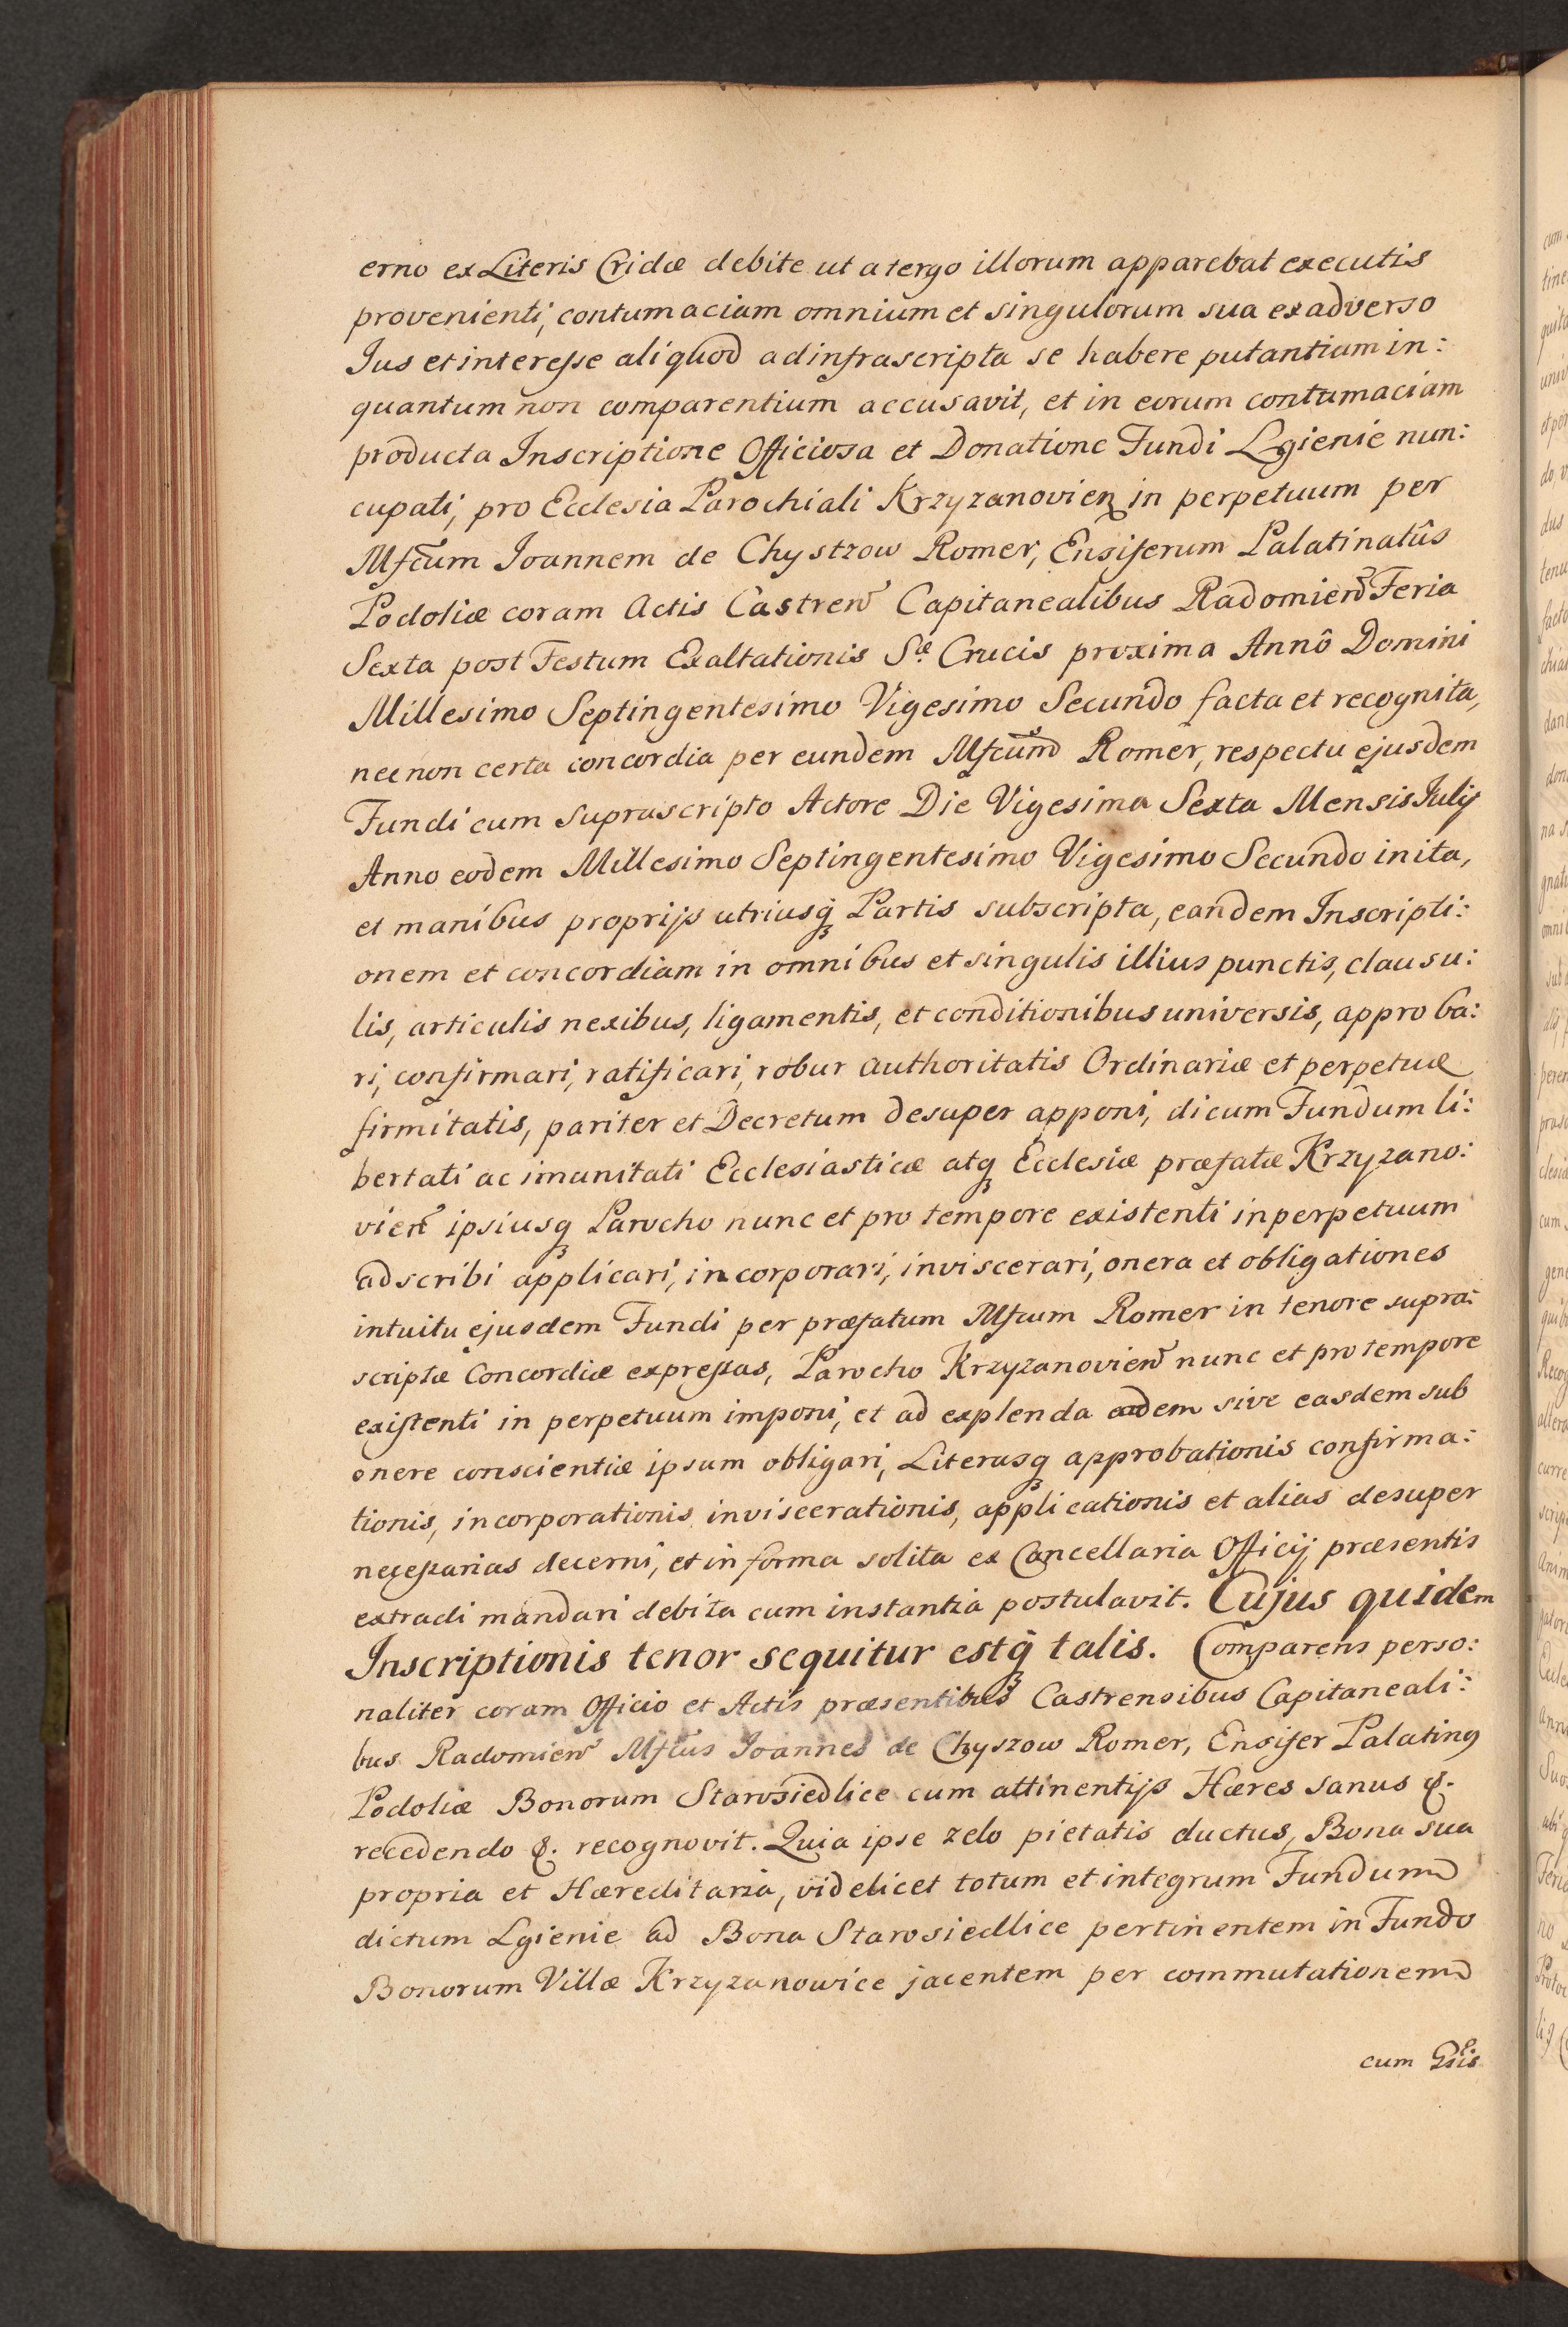 erno ex Literis Cridæ debite ut a tergo illorum apparebat executis
provenienti, contumaciam omnium et singulorum sua ex adverso
Jus et interesse aliquod ad infrascripta se habere putantium in:
quantum non comparentium accusavit, et in eorum contumaciam
producta Inscriptione Officiosa et Donatione Fundi Lgienie nun:
cupati, pro Ecclesia Parochiali Krzyzanovien in perpetuum per
Mfcum Joannem de Chystzow Romer, Ensiferum Palatinatûs
Podoliæ coram Actis Castren Capitanealibus Radomien Feria
Sexta post Festum Exaltationis S.æ Crucis proxima Annô Domini
Millesimo Septingentesimo Vigesimo Secundo facta et recognita,
nec non certa concordia per eundem Mfcum Romer, respectu ejusdem
Fundi cum suprascripto Actore Die Vigesima Sexta Mensis Julij
Anno eodem Millesimo Septingentesimo Vigesimo Secundo inita,
et manibus proprijs utriusq̃ Partis subscripta, eandem Inscripti:
onem et concordiam in omnibus et singulis illius punctis, clausu:
lis, articulis nexibus, ligamentis, et conditionibus universis, approba:
ri, confirmari, ratificari, robur authoritatis Ordinariæ et perpetuæ
firmitatis, pariter et Decretum desuper apponi, dicum Fundum li:
bertati ac imunitati Ecclesiasticæ atq Ecclesiæ præfatæ Krzyzano:
vien ipsiusq Parocho nunc et pro tempore existenti in perpetuum
adscribi applicari, incorporari, inviscerari, onera et obligationes
intuitu ejusdem Fundi per præfatum Mfcum Romer in tenore supra:
scriptæ Concordiæ expressas, Parocho Krzyzanovien nunc et pro tempore
existenti in perpetuum imponi, et ad explenda eadem sive easdem sub
onere conscientiæ ipsum obligari, Literasq approbationis confirma:
tionis, incorporationis inviscerationis, applicationis et alias desuper
necessarias decerni, et in forma solita ex Cancellaria Officij præsentis
extradi mandari debita cum instantia postulavit. Cujus quidem
Inscriptionis tenor sequitur estq̃ talis. Comparens perso:
naliter coram Officio et Actis præsentibus Castrensibus Capitaneali:
bus Radomien Mfcus Joannes de Chyszow Romer, Ensifer Palating
Podoliæ Bonorum Starosiedlice cum attinentijs Hæres sanus &.
recedendo &. recognovit. Quia ipse zelo pietatis ductus, Bona sua
propria et Hæreditaria, videlicet totum et integrum Fundum
dictum Lgienie ad Bona Starosiedlice pertinentem in Fundo
Bonorum Villæ Krzyzanowice jacentem per commutationem
cum